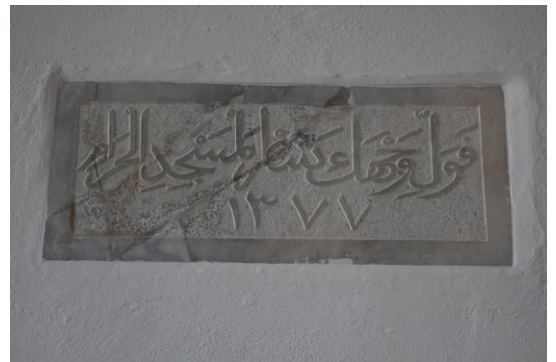 فَوَلِّ وَجْهَكَ شَطْرَ الْمَسْجِدِ الْحَرَامِ
١٣٧٧